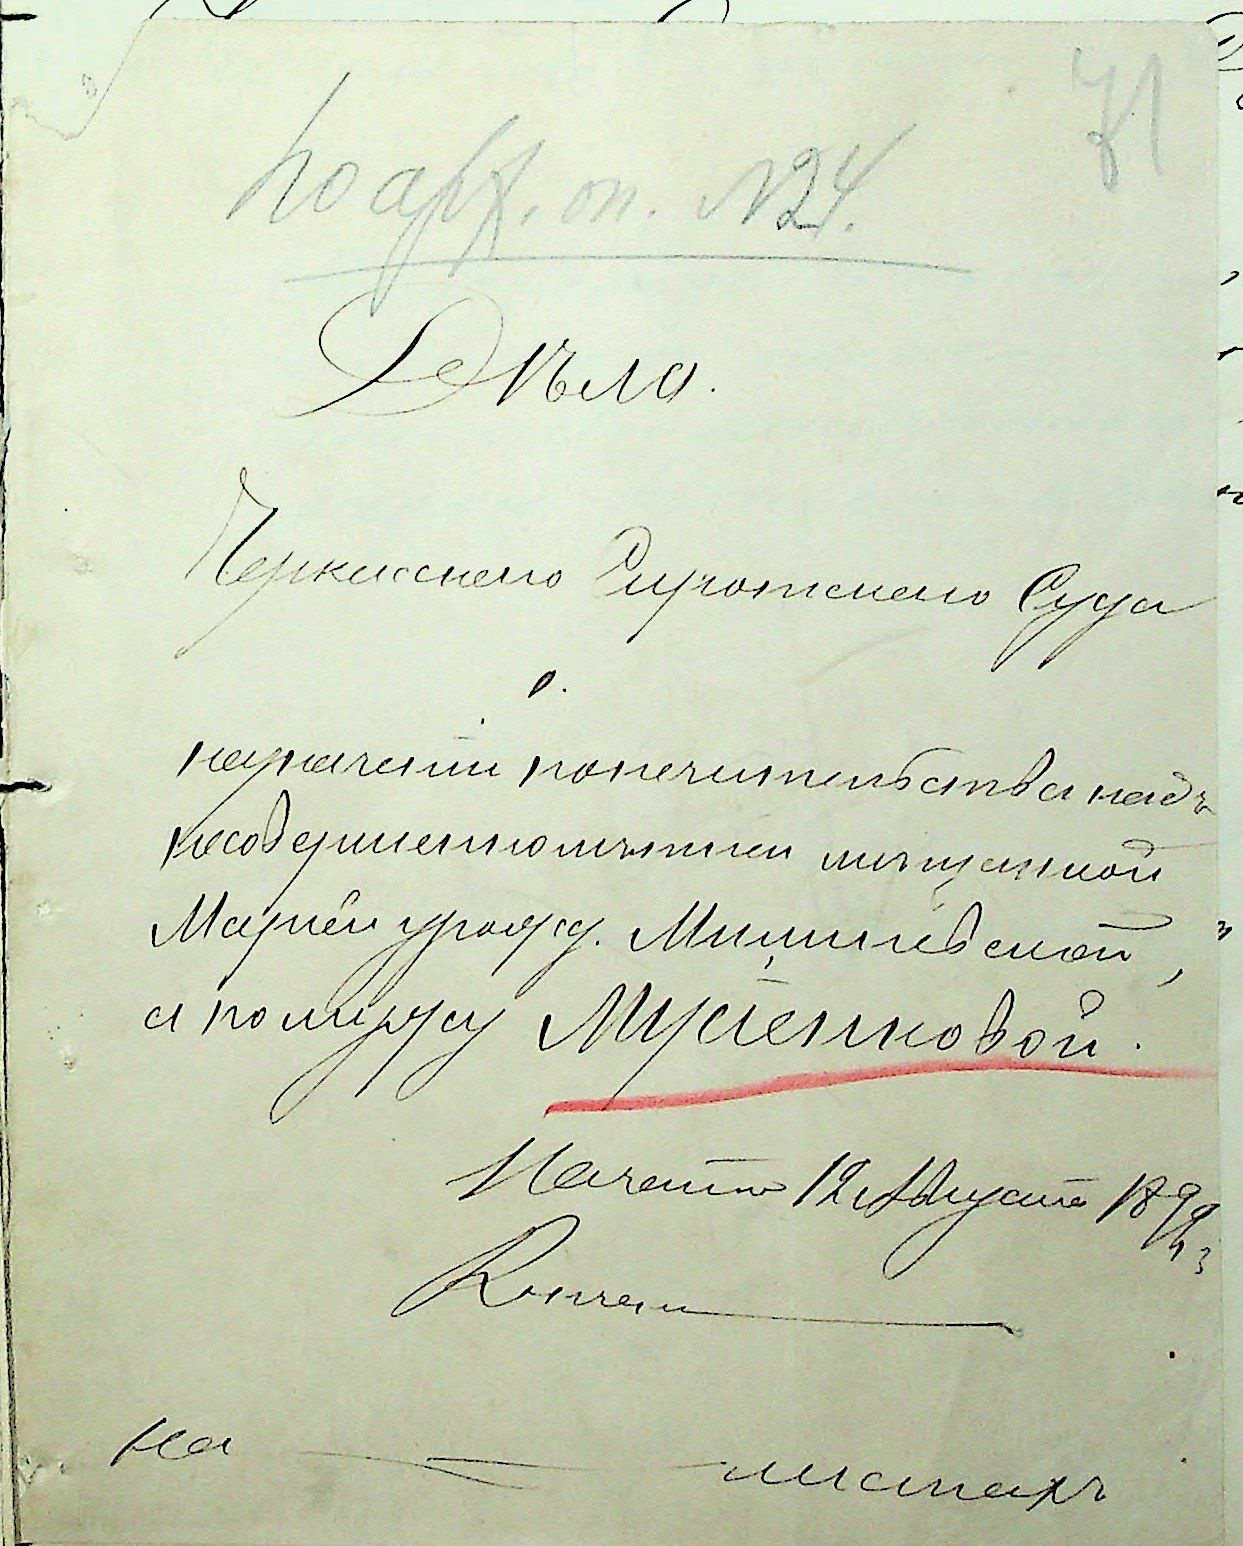 71
по арх. оп. № 24.
Дѣло.
Черкасскаго Сиротскаго Суда
о.
назначеніи попечительства надъ
несовершеннолѣтнею мѣщанкой
Маріей урожд.
а по мужу Мусіенковой.
Начато 12 Августа 1899 г.
Кончен
на листахъ